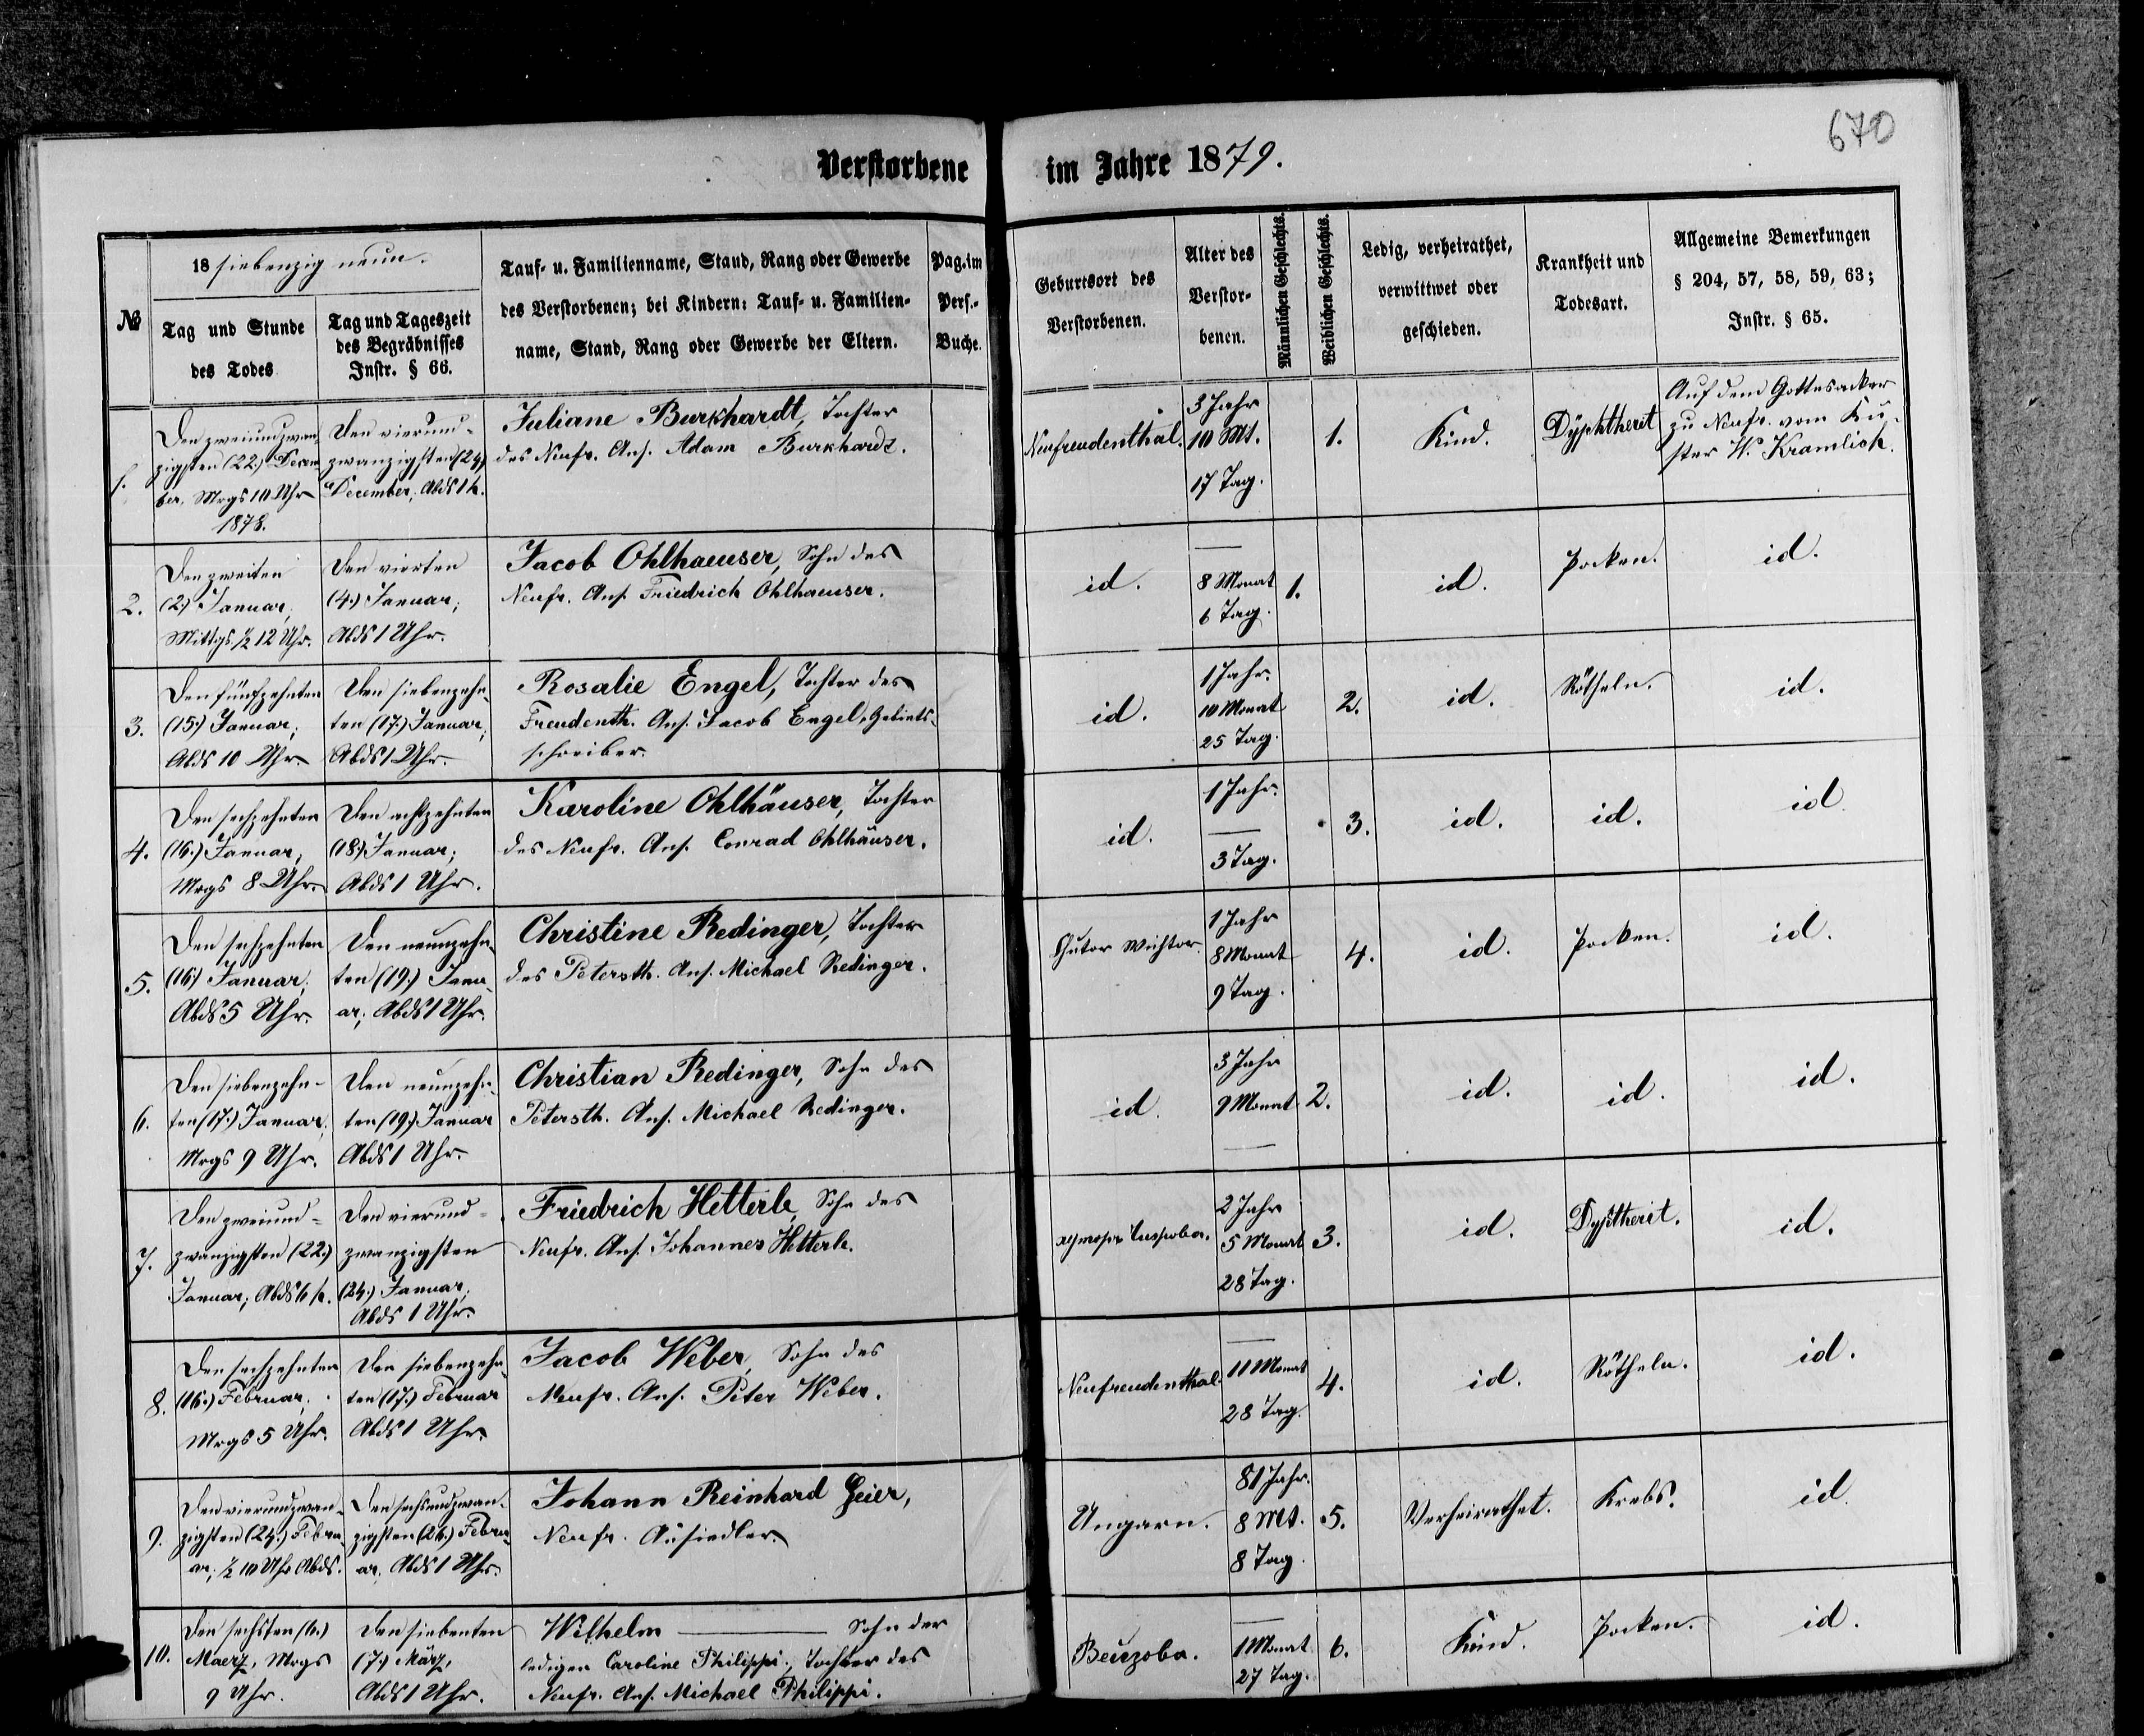 670
Verstorbene im Jahre 1879.
№
18 siebenzig neun.
Tag und Stunde
des Todes
Tag und Tageszeit
des Begräbnisses
Instr. § 66.
Tauf- u. Familienname, Stand, Rang oder Gewerbe
des Verstorbenen; bei Kindern: Tauf- u. Familien-
name, Stand, Rang oder Gewerbe der Eltern.
Pag. im
Pers.-
Buche.
Geburtsort des
Verstorbenen.
Alter des
Verstor-
benen.
Männlichen Geschlechts.
Weiblichen Geschlechts.
Ledig, verheirathet,
verwittwet oder
geschieden.
Krankheit und
Todesart.
Allgemeine Bemerkungen
§ 204, 57, 58, 59, 63;
Instr. § 65.
1.
Den zweiundzwan-
zigsten (22.) Decem-
ber, Mrgs 10 Uhr
1878.
Den vierund-
zwanzigsten (24.)
December, Abds 1 h.
Juliane Burkhardt, Tochter
des Neufr. Ans. Adam Burkhardt.
Neufreudenthal.
3 Jahr
10 Mt.
17 Tag.
1.
Kind.
Dÿphtherit
Auf dem Gottesacker
zu Neufr. vom Kü-
ster W. Kramlich.
2.
Den zweiten
(2.) Januar,
Mittgs. ½ 12 Uhr.
Den vierten
(4.) Januar;
Abds 1 Uhr.
Jacob Ohlhaeuser, Sohn des
Neufr. Ans. Friedrich Ohlhaeuser.
id.
—
8 Monat
6 Tag.
1.
id.
Pocken.
id.
3.
Den fünfzehnten
(15.) Januar;
Abds 10 Uhr.
Den siebenzehn-
ten (17.) Januar;
Abds 1 Uhr.
Rosalie Engel, Tochter des
Freudenth. Ans. Jacob Engel, Gebiets-
schreiber.
id.
1 Jahr.
10 Monat
25 Tag.
2.
id.
Rötheln.
id.
4.
Den sechzehnten
(16.) Januar,
Mrgs 8 Uhr.
Den achtzehnten
(18.) Januar;
Abds 1 Uhr.
Karoline Ohlhäuser, Tochter
des Neufr. Ans. Conrad Ohlhäuser.
id.
1 Jahr.
—
3 Tag.
3.
id.
id.
id.
5.
Den sechzehnten
(16.) Januar;
Abds 5 Uhr.
Den neunzehn-
ten (19.) Janu-
ar; Abds 1 Uhr.
Christine Redinger, Tochter
des Petersth. Ans. Michael Redinger.
Chutor
1 Jahr
8 Monat
9 Tag.
4.
id.
Pocken.
id.
6.
Den siebenzehn-
ten (17.) Januar,
Mrgs 9 Uhr.
Den neunzehn-
ten (19.) Januar
Abds 1 Uhr.
Christian Redinger, Sohn des
Petersth. Ans. Michael Redinger.
id.
3 Jahr
9 Monat
—
2.
id.
id.
id.
7.
Den zweiund-
zwanzigsten (22.)
Januar; Abds 6 h.
Den vierund-
zwanzigsten
(24.) Januar,
Abds 1 Uhr.
Friedrich Hetterle, Sohn des
Neufr. Ans. Johannes Hetterle.
2 Jahr
5 Monat
28 Tag.
3.
id.
Dyphtherit.
id.
8.
Den sechzehnten
(16.) Februar,
Mrgs 5 Uhr.
Den siebenzehn-
ten (17.) Februar
Abds 1 Uhr.
Jacob Weber, Sohn des
Neufr. Ans. Peter Weber.
Neufreudenthal.
—
11 Monat
28 Tag.
4.
id.
Rötheln.
id.
9.
Den vierundzwan-
zigsten (24.) Febru-
ar; ½ 10 Uhr Abds.
Den sechsundzwan-
zigsten (26.) Febru-
ar. Abds 1 Uhr.
Johann Reinhard Geier,
Neufr. Ansiedler.
Ungarn.
81 Jahr.
8 Mt.
8 Tag.
5.
Verheirathet.
Krebs.
id.
10.
Den sechsten (6.)
Maerz, Mrgs
9 Uhr.
Den siebenten
(7.) März,
Abds 1 Uhr.
Wilhelm — Sohn der
ledigen Caroline Philippi, Tochter des
Neufr. Ans. Michael Philippi.
—
1 Monat
27 Tag.
6.
Kind.
Pocken.
id.